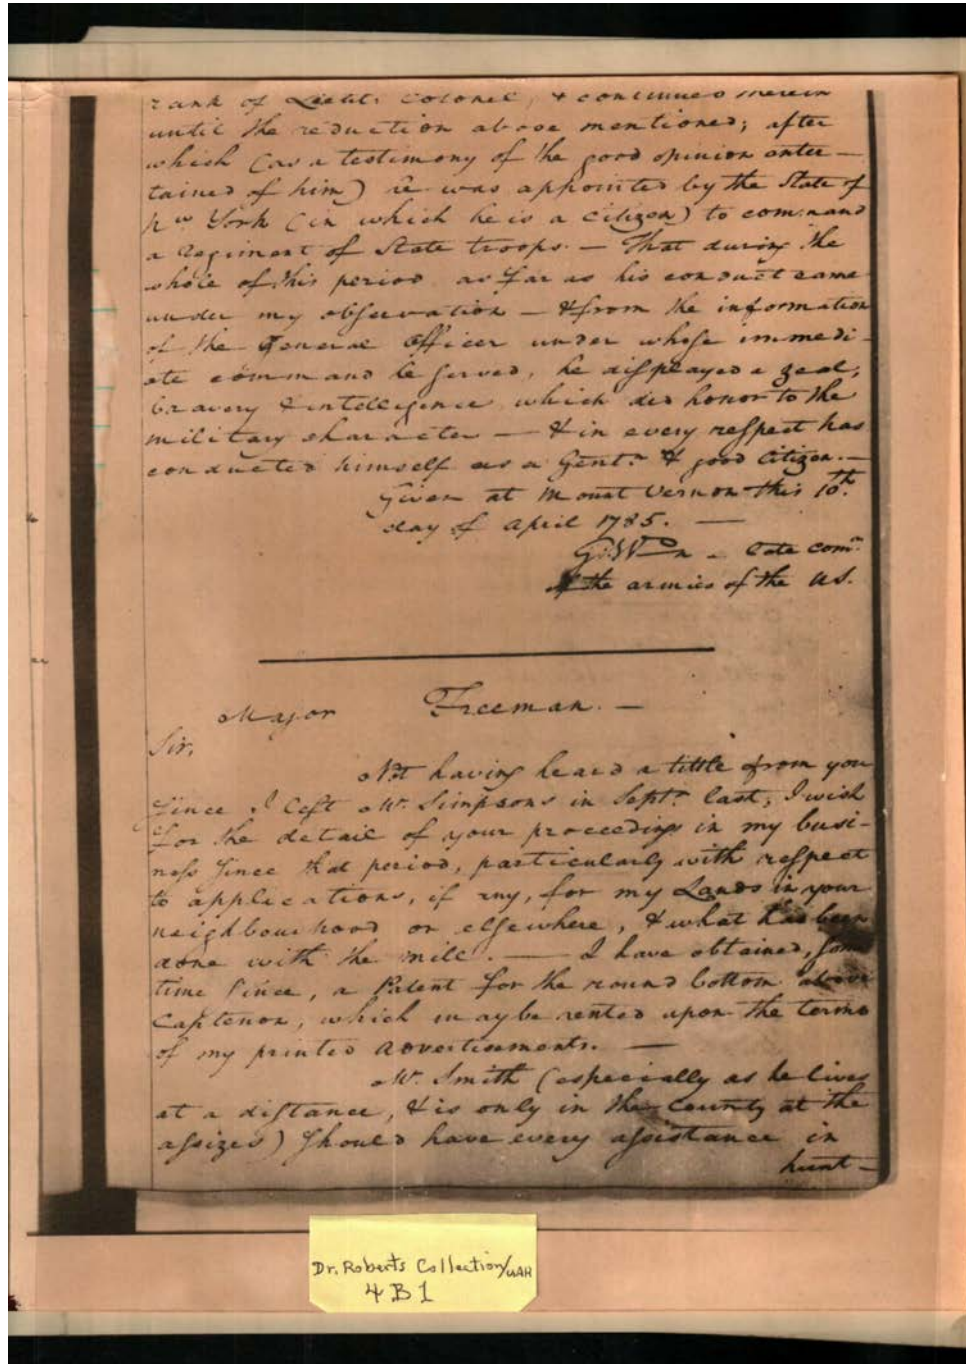 rank of Lieut. Colonel, & continued therein
until the reduction above mentioned; after
which (as a testimony of the good opinion enter-
tained of him) he was appointed by the State of
Nw York (in which he is a citizen) to command
a Regiment of State troops. — That during the
whole of this period as far as his conduct came
under my observation — & from the information
of the General Officer under whose immedi-
ate command he served, he displayed a zeal,
bravery & intelligence which did honor to the
military character — & in every respect has
conducted himself as a Gentn. & good Citizen. —
Given at Mount Vernon this 10th.
day of April 1785. —
G: W——n – late comr.
of the armies of the US.
Major Freeman. —
Sir,
Not having heard a tittle from you
since I left Mr. Simpsons in Septr. last, I wish
for the detail of your proceedings in my busi-
ness since that period, particularly with respect
to applications, if any, for my Lands in your
neighbourhood or elsewhere, & what has been
done with the mill. — I have obtained, some
time since, a Patent for the round bottom above
Captenon, which may be rented upon the terms
of my printed advertisements. —
Mr. Smith (especially as he lives
at a distance, & is only in the County at the
assizes) should have every assistance in
hunt-
Dr. Roberts Collection/UAH
4B1